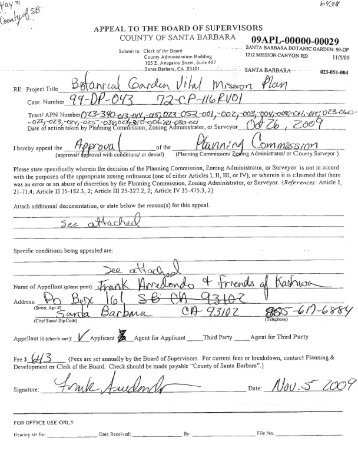 APPEAL TO THE BOARD OF SUPERVISORS
COUNTY OF SANTA BARBARA
09APL-00000-00029
Submit to: Clerk of the Board
County Administration Building
105 E. Anapamu Street, Suite 407
Santa Barbara, CA 93101
SANTA BARBARA BOTANIC GARDEN 99-DP
1212 MISSION CANYON RD 11/5/09
SANTA BARBARA 023-051-004
RE: Project Title Botanical Garden Vital Mission Plan
Case Number 99-DP-043 72-CP-116 RV01
Tract/ APN Number
Date of action taken by Planning Commission, Zoning Administrator, or Surveyor Oct 26, 2009
I hereby appeal the Approval of the Planning Commission
(approval/ approval with conditions/ or denial) (Planning Commission/ Zoning Administrator/ or County Surveyor )
Please state specifically wherein the decision of the Planning Commission, Zoning Administrator, or Surveyor is not in accord
with the purposes of the appropriate zoning ordinance (one of either Articles I, II, III, or IV), or wherein it is claimed that there
was an error or an abuse of discretion by the Planning Commission, Zoning Administrator, or Surveyor. (References: Article I,
21-71.4; Article II 35-182.3, 2; Article III 35-327.2, 2; Article IV 35-475.3, 2)
Attach additional documentation, or state below the reason(s) for this appeal.
See attached
Specific conditions being appealed are:
See attached
Name of Appellant (please print): Frank Arredondo & Friends of Kashwa
Address: Po Box 161 SB CA 93102
(Street, Apt #)
Santa Barbara CA 93102 805-617-6884
(City/ State/ Zip Code) (Telephone)
Appellant is (check one): Applicant Agent for Applicant Third Party Agent for Third Party
Fee $ 643 (Fees are set annually by the Board of Supervisors. For current fees or breakdown, contact Planning &
Development or Clerk of the Board. Check should be made payable "County of Santa Barbara".)
Signature: Frank Arredondo Date: Nov. 5 2009
FOR OFFICE USE ONLY
Hearing set for: Date Received: By: File No.